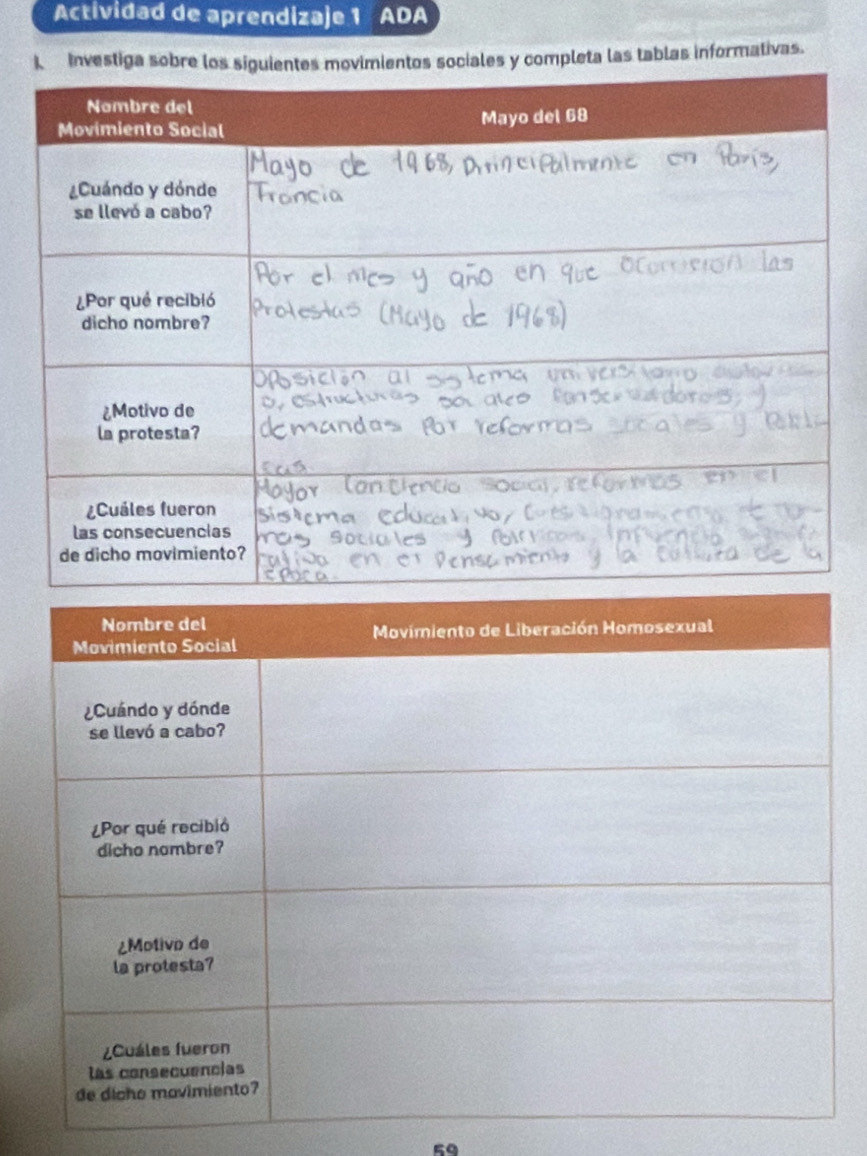 Actividad de aprendizaje 1 ADA
I. Investiga sobre los siguientes movimientos sociales y completa las tablas informativas.
Nombre del
Movimiento Social
Mayo del 68
¿Cuándo y dónde
se llevó a cabo?
Mayo de 1968, principalmente en Paris,
Francia
¿Por qué recibió
dicho nombre?
Por el mes y año en que ocurrieron las
Protestas (Mayo de 1968)
¿Motivo de
la protesta?
Oposición al sistema universitario
o, estructuras conservadoras, y
demandas por reformas sociales y
¿Cuáles fueron
las consecuencias
de dicho movimiento?
Mayor conciencia social, reformas en el
sistema educativo,
mas sociales y politicos, influencia
ativa en el pensamiento y la cultura de la
epoca.
Nombre del
Movimiento Social
Movimiento de Liberación Homosexual
¿Cuándo y dónde
se llevó a cabo?
¿Por qué recibió
dicho nombre?
¿Motivo de
la protesta?
¿Cuáles fueron
las consecuencias
de dicho movimiento?
59